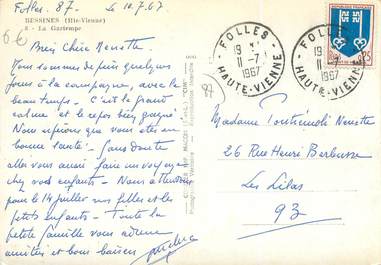 Folles. 87- le 10.7.67
BESSINES (Hte-Vienne)
8 - La Gartempe
6€
Bien Chère Nenette
Nous sommes depuis quelques
jours à la campagne, avec le
beau temps. C'est le grand
calme et le repos bien gagné.
Nous espérons que vous êtes en
bonne santé. Sans doute
allez vous aussi faire un voyage
chez vos enfants. Nous attendons
pour le 14 juillet nos filles et les
petits enfants. Toute la
petite famille vous adresse
amitiés et bons baisers
FOLLES
19 H
11-7
1967
HAUTE-VIENNE
FOLLES
11-7
1967
HAUTE-VIENNE
REPUBLIQUE FRANÇAISE
0,25
87
MACON "CIM"
Madame Nenette
26 Rue Henri Barbusse
Les Lilas
93